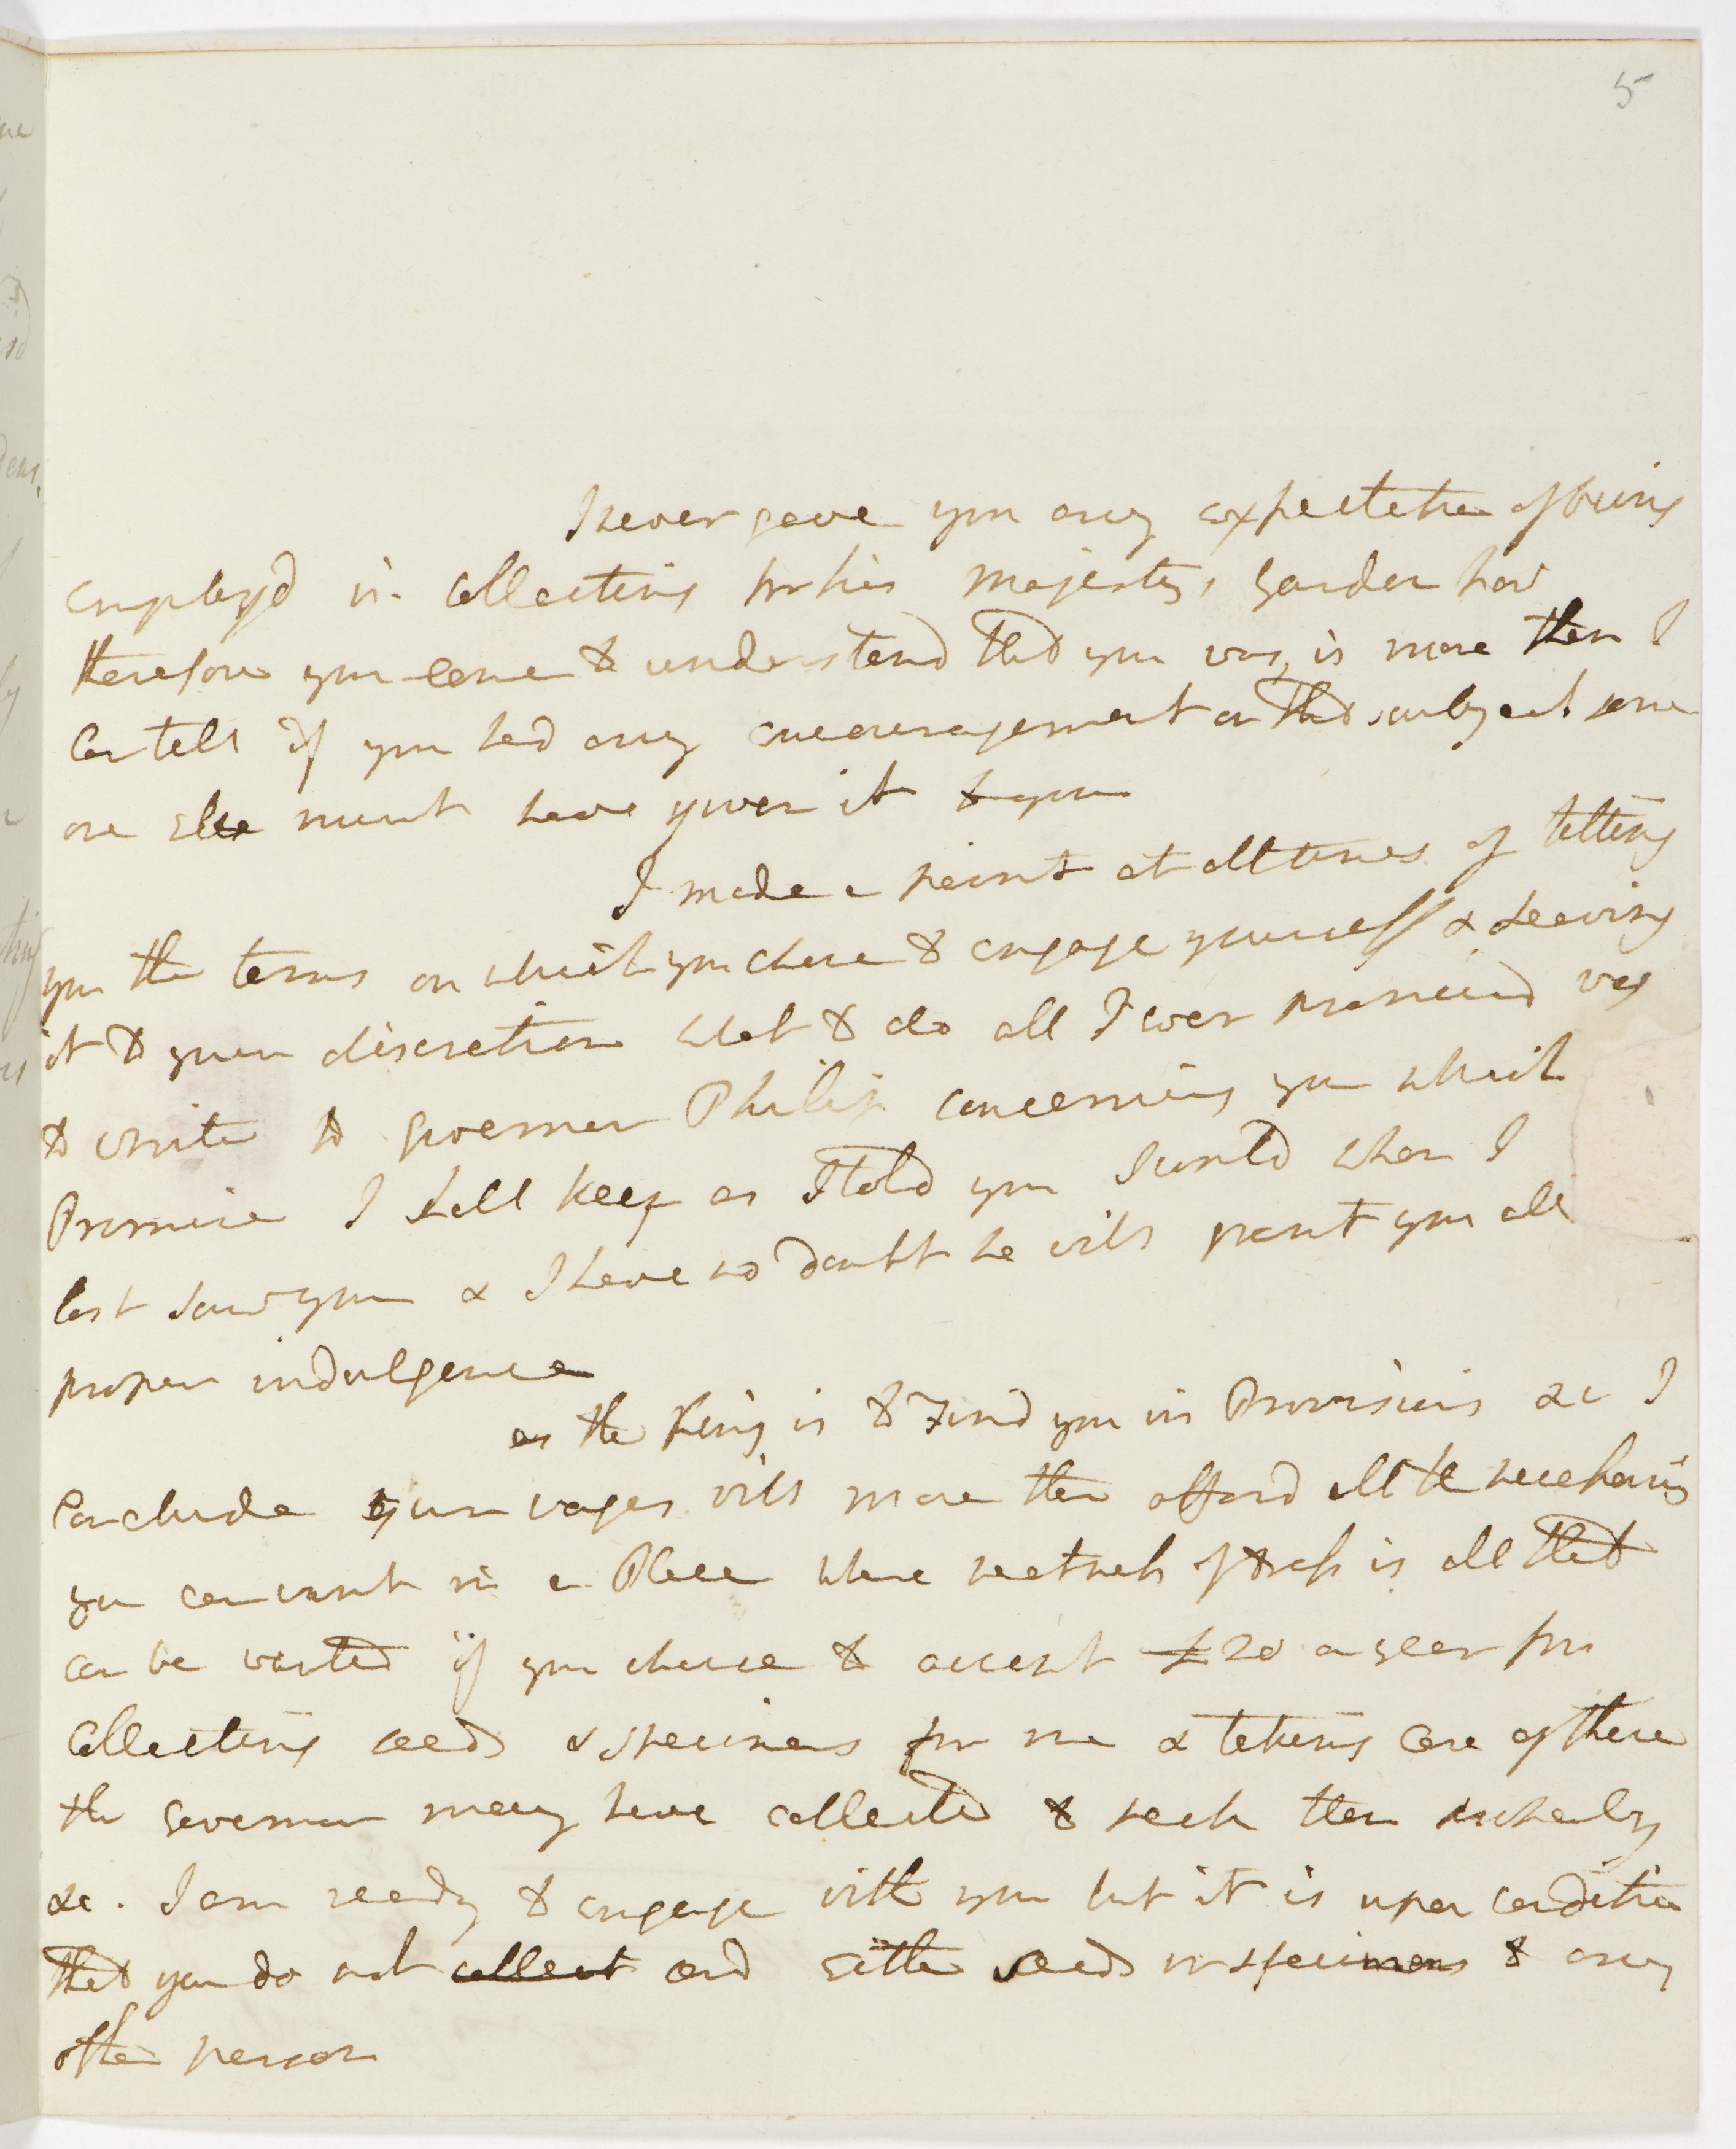 5
I never gave you any expectation of being
employd in collecting for his majestys Garden how
therefore you came to understand that you was, is more than I
Can tell if you had any encouragement on that subject some
one else must have given it to you
I made a point at all times of telling
you the terms on which you chose to engage yourself & Leaving
it to your discretion what to do all I ever promised was
to write to governor Philip concerning you which
Promise I shall keep as I told you I would when I
last saw you & I have no doubt he will grant you all
proper indulgence
as the King is to Find you in Provisions &c I
Conclude your wages will more than afford all the necessaries
you can want in a Place where neatness of dress is all that
can be wanted if you chuse to accept £20 a year for
Collecting seeds & specimens for me & taking Care of those
the Governor may have collected to
&c. I am ready to engage with you but it is upon condition
that you do not collect and either seeds or specimens to any
other person